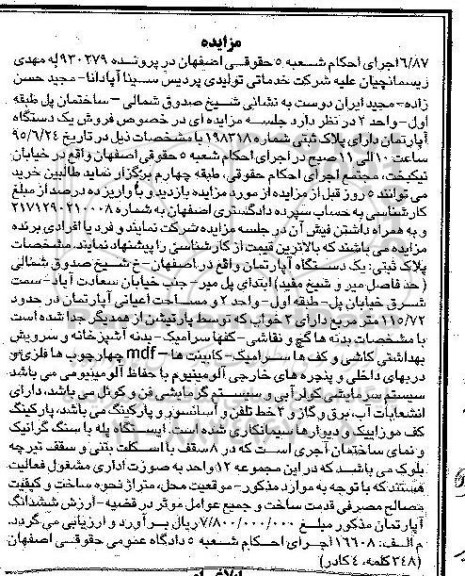 مزایده
۶/۸۷ اجرای احکام شعبه ۵ حقوقی اصفهان در پرونده ۹۳۰۲۷۹ له مهدی
ریسمانچیان علیه شرکت خدماتی تولیدی پردیس سینا آپادانا- مجید حسن
زاده- مجید ایران دوست به نشانی شیخ صدوق شمالی – ساختمان پل طبقه
اول- واحد ۲ در نظر دارد جلسه مزایده ای در خصوص فروش یک دستگاه
آپارتمان دارای پلاک ثبتی شماره ۱۹۸۳۱۸ با مشخصات ذیل در تاریخ ۹۵/۶/۲۴
ساعت ۱۰ الی ۱۱ صبح در اجرای احکام شعبه ۵ حقوقی اصفهان واقع در خیابان
نیکبخت، مجتمع اجرای احکام حقوقی، طبقه چهارم برگزار نماید طالبین خرید
می توانند ۵ روز قبل از مزایده از مورد مزایده بازدید و با واریز ده درصد از مبلغ
کارشناسی به حساب سپرده دادگستری اصفهان به شماره ۲۱۷۱۲۹۰۲۱۰۰۰۸
و به همراه داشتن فیش آن در جلسه مزایده شرکت نمایند و فرد یا افرادی برنده
مزایده می باشند که بالاترین قیمت از کارشناسی را پیشنهاد نمایند. مشخصات
پلاک ثبتی: یک دستگاه آپارتمان واقع در اصفهان –خ شیخ صدوق شمالی
(حد فاصل میر و شیخ مفید) ابتدای پل میر- جنب خیابان سعادت آباد-سمت
شرق خیابان پل- طبقه اول- واحد ۲ و مساحت اعیانی آپارتمان در حدود
۱۱۵/۷۲ متر مربع دارای ۲ خواب که توسط پارتیشن از همدیگر جدا شده است
با مشخصات بدنه ها گچ و نقاشی- کفها سرامیک- بدنه آشپزخانه و سرویش
بهداشتی کاشی و کف ها سرامیک- کابینت ها –mdf چهارچوب ها فلزی و
دربهای داخلی و پنجره های خارجی آلومینیوم با حفاظ آلومینیومی می باشد
سیستم سرمایشی کولر آبی و سیستم گرمایشی فن و کوئل می باشد، دارای
انشعابات آب، برق و گاز و ۲ خط تلفن و آسانسور و پارکینگ می باشد، پارکینگ
کف موزاییک و دیوارها سیمانکاری شده است. ایستگاه پله با سنگ گرانیک
و نمای ساختمان آجری است که در ۸ سقف با اسکلت بتنی و سقف تیرچه
بلوک می باشد که در این مجموعه ۱۲ واحد به صورت اداری مشغول فعالیت
هستند که با توجه به موارد مذکور- موقعیت محل، متراژ نحوه ساخت و کیفیت
مصالح مصرفی قدمت ساخت و جمیع عوامل موثر در قضیه- ارزش ششدانگ
آپارتمان مذکور مبلغ ۷/۸۰۰/۰۰۰/۰۰۰ ریال برآورد و ارزیابی می گردد.
م الف: ۱۶۶۰۸ اجرای احکام شعبه ۵ دادگاه عمومی حقوقی اصفهان
(۳۴۸ کلمه، ۴ کادر)